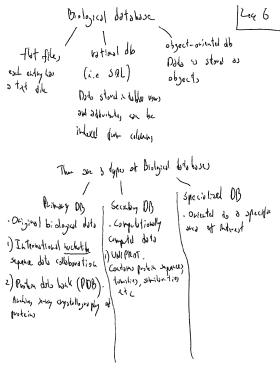 Biological database
Lec 6
flat files
each entry has
a txt file
rational db
(i.e SQL)
Data stored in tables rows
and attributes can be
indexed from columns
object-oriented db
Data is stored as
objects
There are 3 types of Biological databases
Primary DB
. Original biological data
1) International nucleotide
sequence data collaboration
2) Protein data bank (PDB).
x-ray crystallography of
proteins
Secondary DB
. Computationally
computed data
1) UNIPROT.
Contains protein sequences
families,
etc
Specialized DB
. Oriented to a specific
area of interest